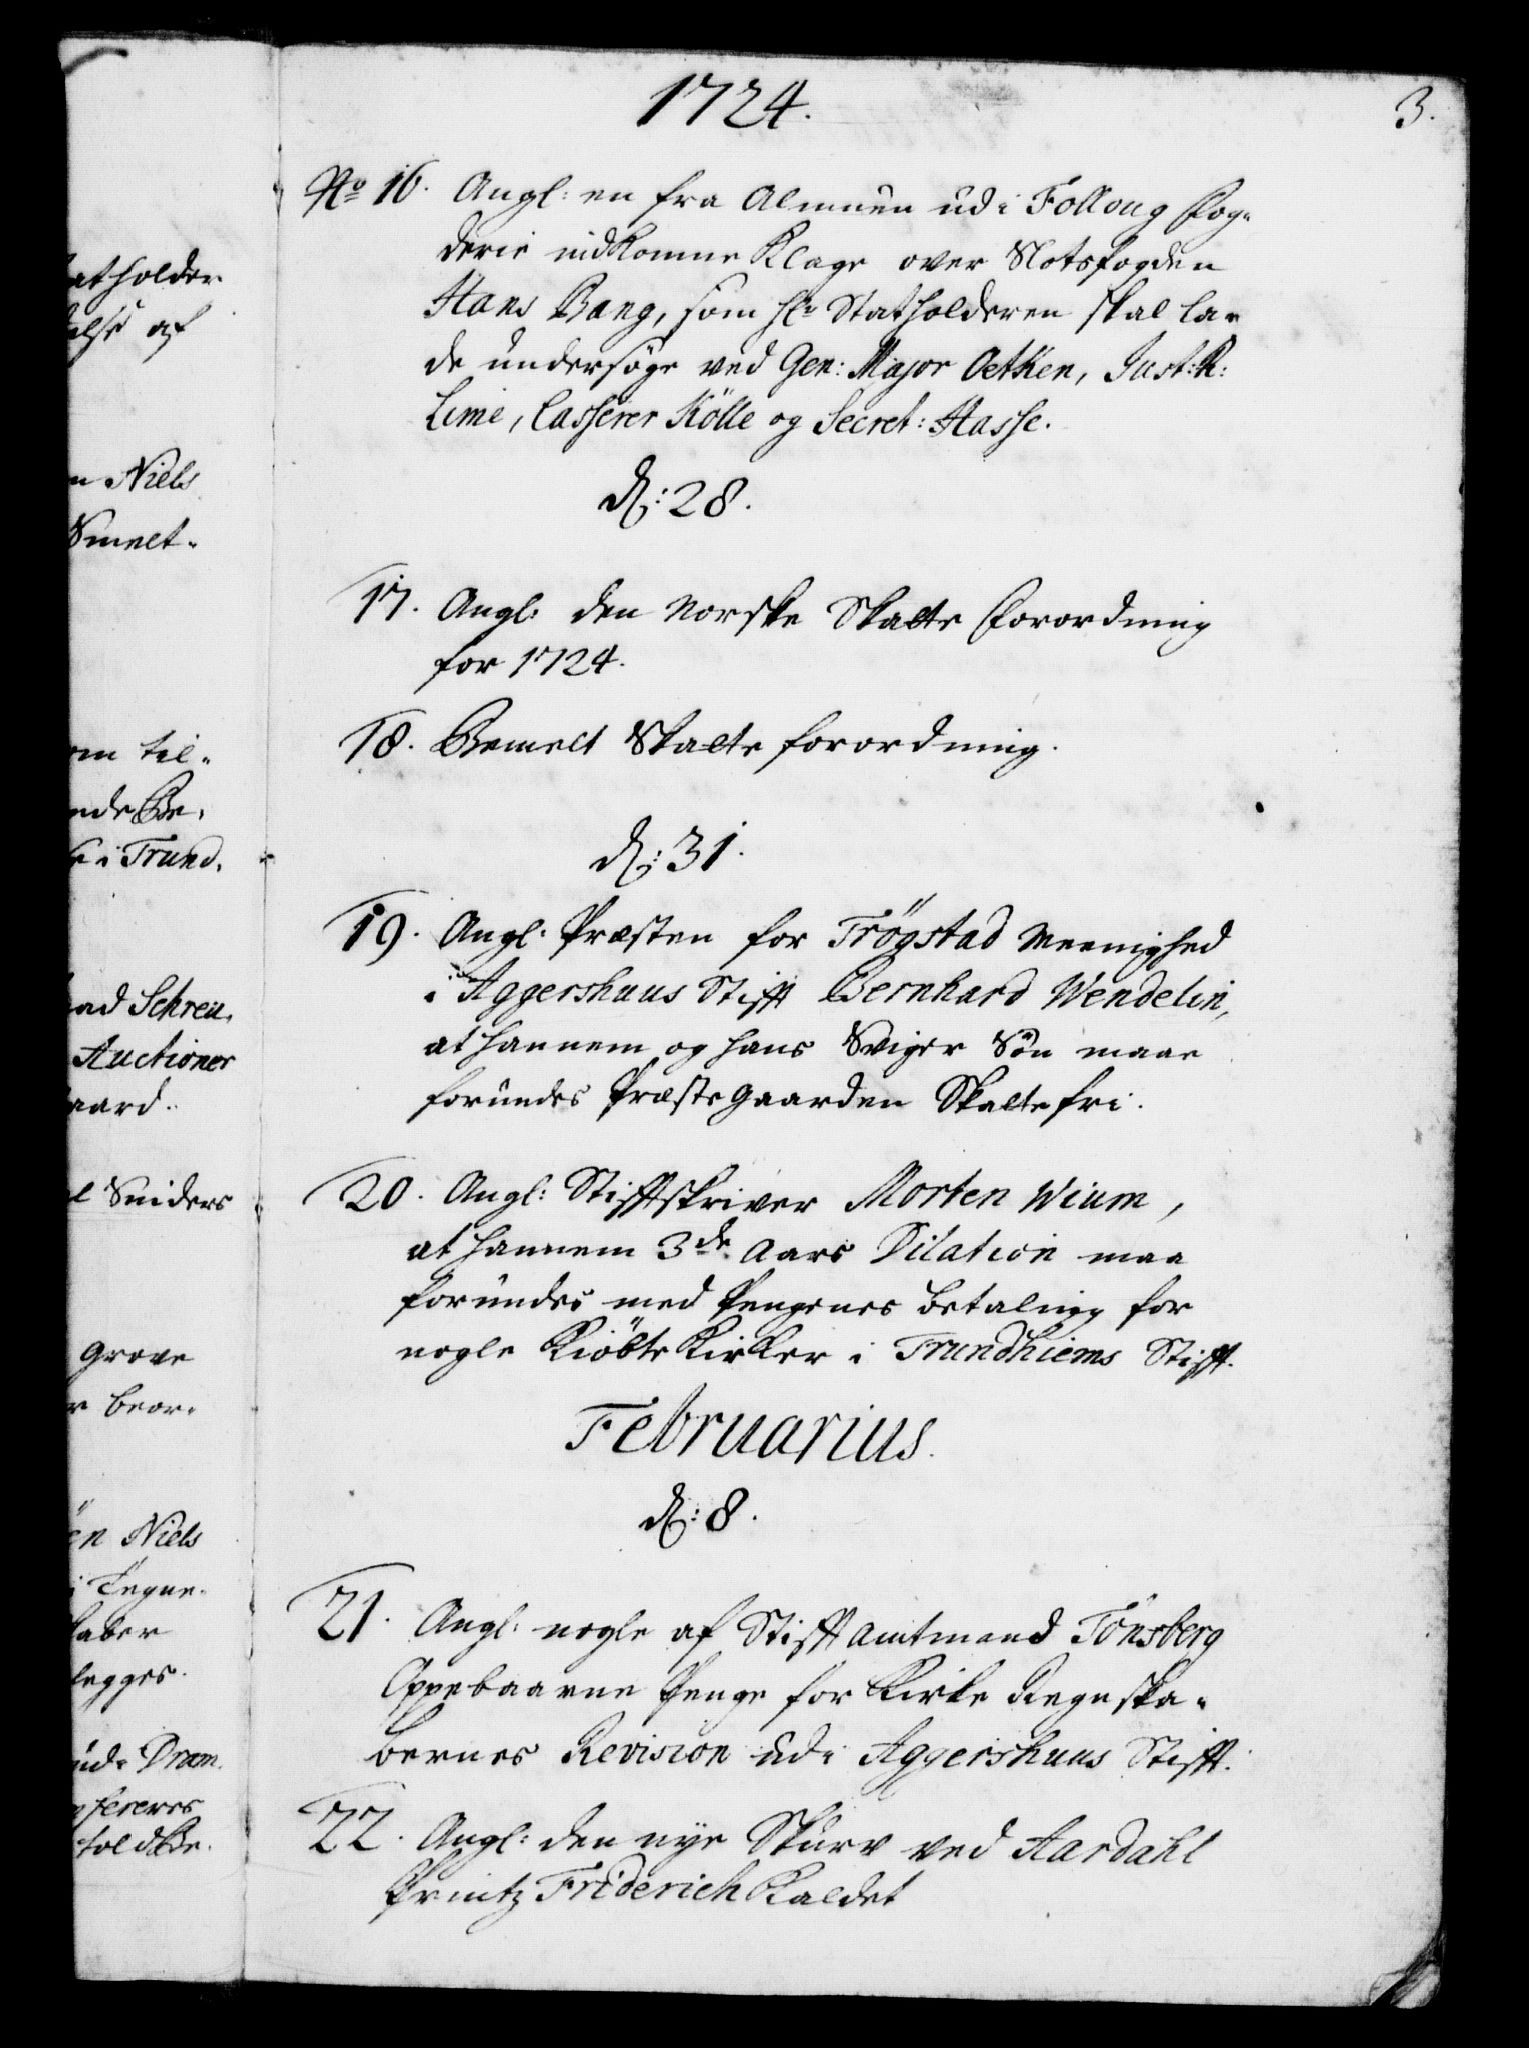 1724.
3.
No 16. Angl: en fra Almuen udi Folloug Fog-
derie indkomne Klage over Slotsfogden
Hans Bang, som Hr Statholderen skal la-
de undersøge ved Gen: Major Oetken, Just: R:
Lime, Casserer Kölle og Secret: Hasse.
d: 28.
17. Angl: den Norske Skatte Forordning
for 1724.
18. Bemelt Skatte forordning.
d: 31.
19. Angl. Præsten for Trögstad Meenighed
i Aggershuus Stifft Bernhard Wendelin,
at hannem og hans Sviger Søn maae
forundes Præstegaarden Skatte fri.
20. Angl: Stifftskriver Morten Wium,
at hannem 3de Aars Dilation maa
forundes med Pengenes betaling for
nogle Kiöbte Kirker i Trundhiems Stifft.
Februarius.
d: 8.
21. Angl: nogle af Stifft amtmand Tönsberg
Oppebaarne Penge for Kirke Regnska-
bernes Revision udi Aggershuus Stifft.
22. Angl: den nye Skurv ved Aardahl
Printz Friderich Kaldet
atholder
else af
n Niels
Smelt-
om til-
ende Be-
i Trund-
ad Schreu-
Auctioner
aard.
Sniders
Grove
beor-
en Niels
i Tegne-
laber
legges.
ud: Dram.
fereres
Told Be-